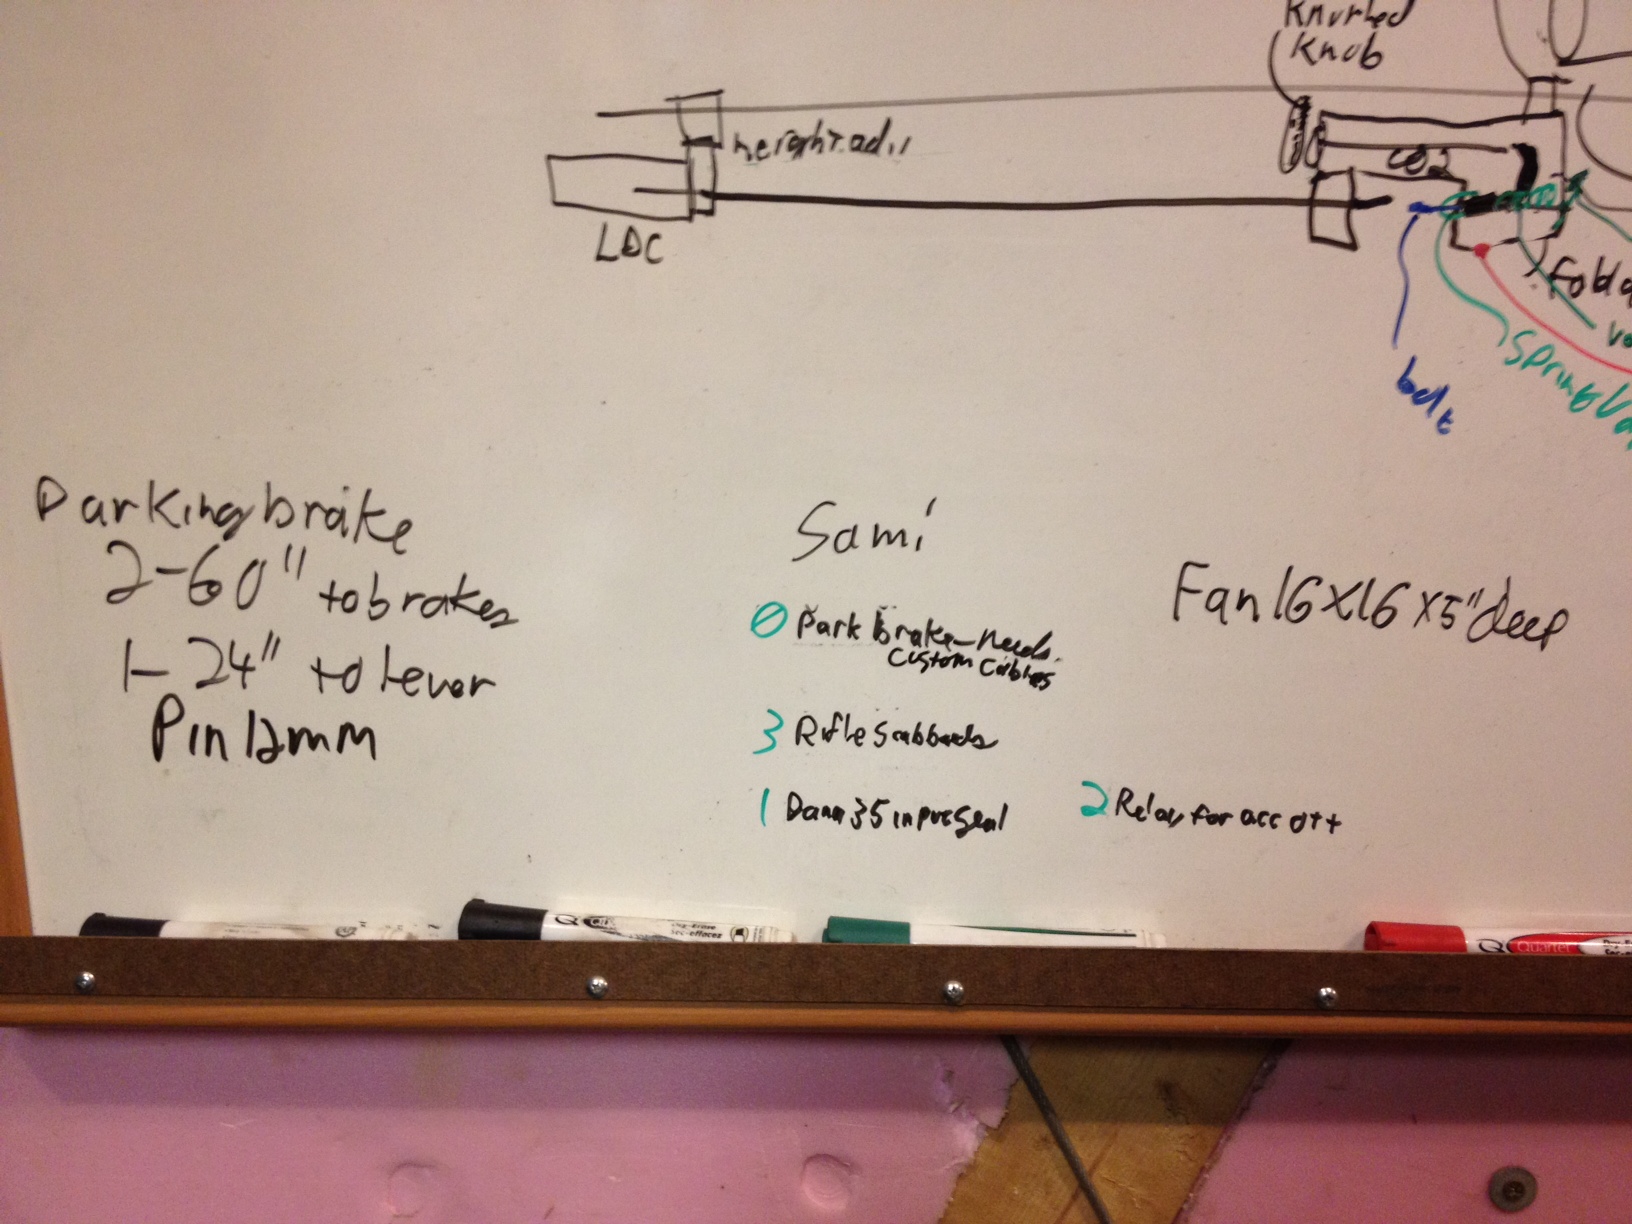 Knurled
Knob
height adj.
CO2
LDC
bolt
Spring Va
Parking brake
2-60" to brakes
1-24" to lever
Pin 12mm
Sami
0 Park brake-Needs
Custom Cables
3 Rifle Scabbards
1 Dana 35 input Seal
2 Relay for acc
Fan 16X16X5" deep
Quartet